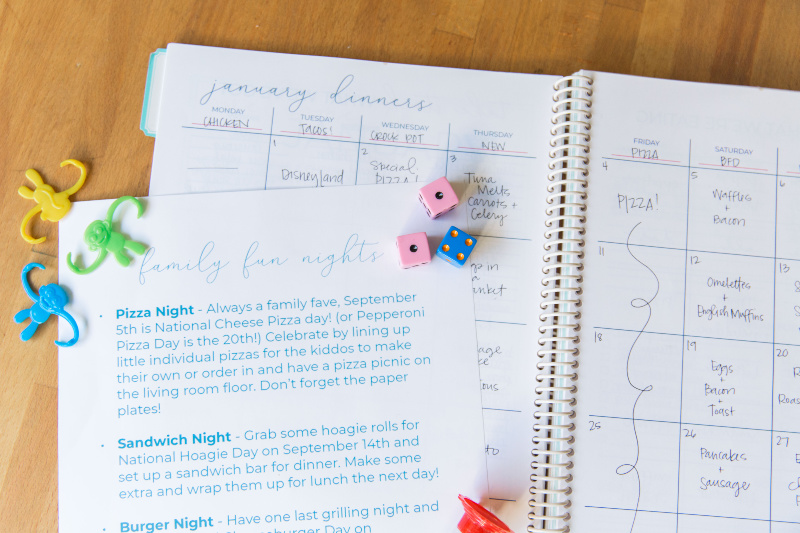 january dinners
MONDAY TUESDAY WEDNESDAY THURSDAY
CHICKEN TACOS! CROCK POT NEW
1 2 3
Disneyland
Special
PIZZA!
Tuna
Melts
Carrots +
Celery
FRIDAY SATURDAY
PIZZA BFD
4 5 6
PIZZA!
Waffles
+
Bacon
11 12 13
Omelettes
+
English Muffins
18 19 20
Eggs
+
Bacon
+
Toast
25 26 27
Pancakes
+
Sausage
family fun nights
• Pizza Night - Always a family fave, September
5th is National Cheese Pizza day! (or Pepperoni
Pizza Day is the 20th!) Celebrate by lining up
little individual pizzas for the kiddos to make
their own or order in and have a pizza picnic on
the living room floor. Don't forget the paper
plates!
• Sandwich Night - Grab some hoagie rolls for
National Hoagie Day on September 14th and
set up a sandwich bar for dinner. Make some
extra and wrap them up for lunch the next day!
• Burger Night - Have one last grilling night and